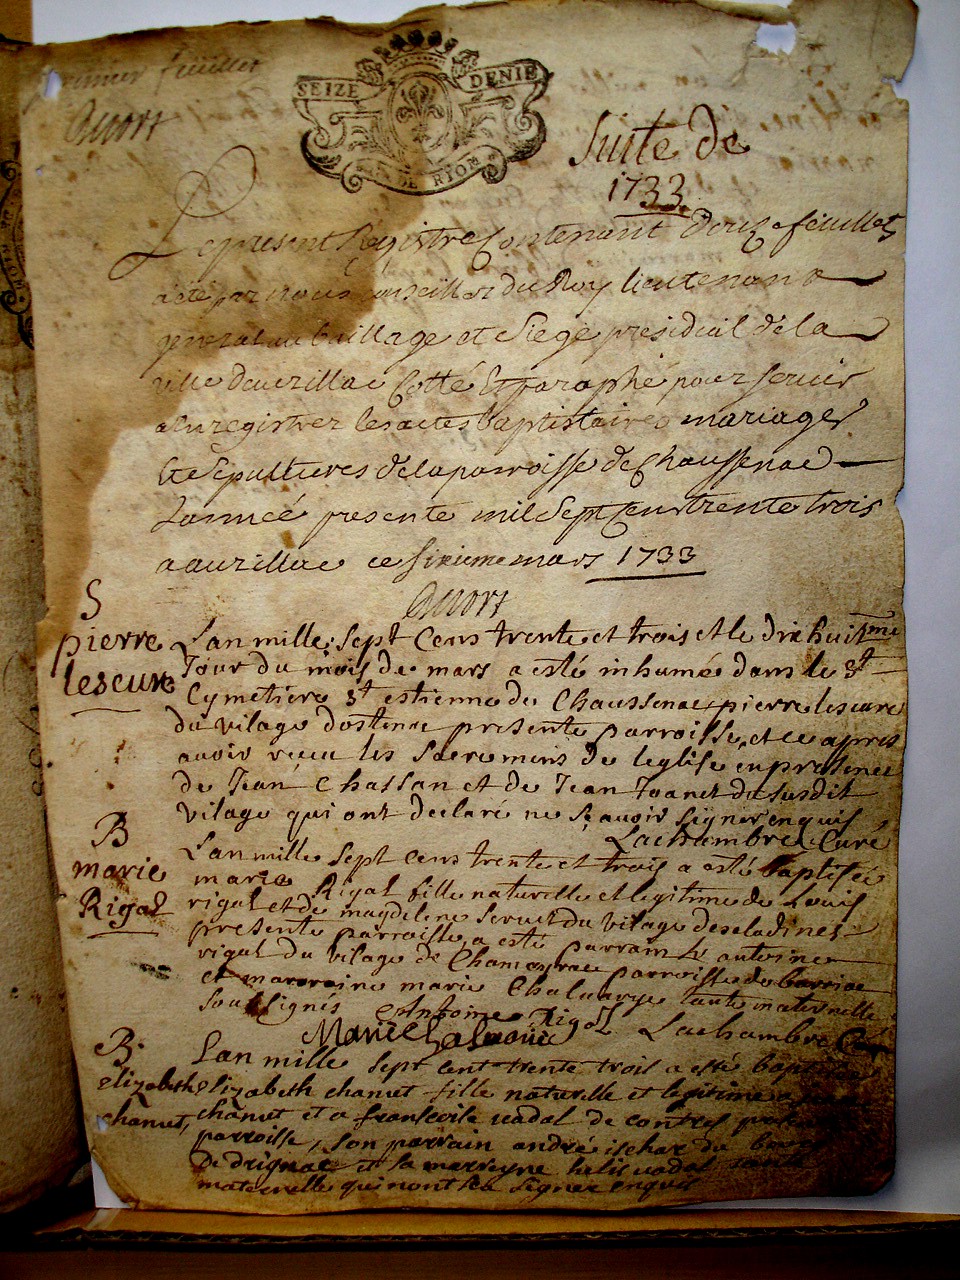 premier feuillet
SEIZE DENIE
DE RIOM
Suite de
1733
Le present Registre Contenant douze feuillets
a été par nous conseiller du Roy lieutenant
general au bailliage et Siege presidial de la
ville daurillac Cotté Et paraphé pour servir
a Enregistrer les actes baptistaires mariages
Et Sepultures de la parroisse de Chaussenac
Lannéé presente mil Sept Cens trente trois
a aurillac ce sixieme mars 1733
S
pierre
lescure
Lan mille Sept Cens trente et trois et le dix huitme
Jour du mois de mars a esté inhumé dans le St
Cymetiere St estienne de Chaussenac pierre lescure
du vilage dostenac presente parroisse, et ce apres
avoir receu les Sacremens de leglise en presence
de Jean Chassan et de Jean Joanet du susdit
vilage qui ont declaré ne sçavoir signer enquis
Lachambre Curé
B
marie
Rigal
Lan mille Sept cens trente et trois a esté baptisée
marie Rigal fille naturelle et legitime de Louis
rigal et de magdelene seruet du vilage deseladines
presente parroisse, a esté parrain antoine
rigal du vilage de Chameyrac parroisse de barriac
et marraine marie Chaluarye tante maternelle
Soussignés Anthoine Rigal
Marie Lachambre Curé
B.
elizabeth
chanut,
Lan mille sept cent trente trois a esté baptisée
elizabeth chanut fille naturelle et legitime a
chanut et a francoise vadal de contres
parroisse, son parrain andré ischar du bourg
de drignac et sa marreyne helis vadal tante
maternelle qui nont sceu signer enquis